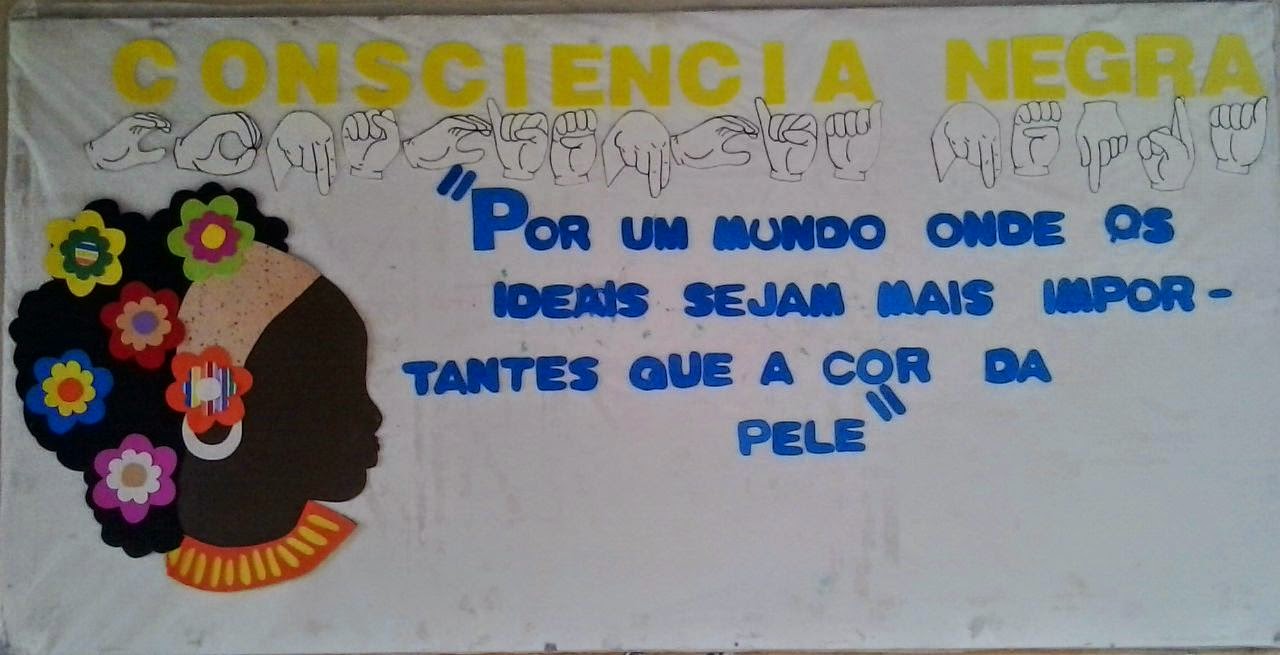 CONSCIENCIA NEGRA
"POR UM MUNDO ONDE OS
IDEAIS SEJAM MAIS IMPOR-
TANTES QUE A COR DA
PELE"